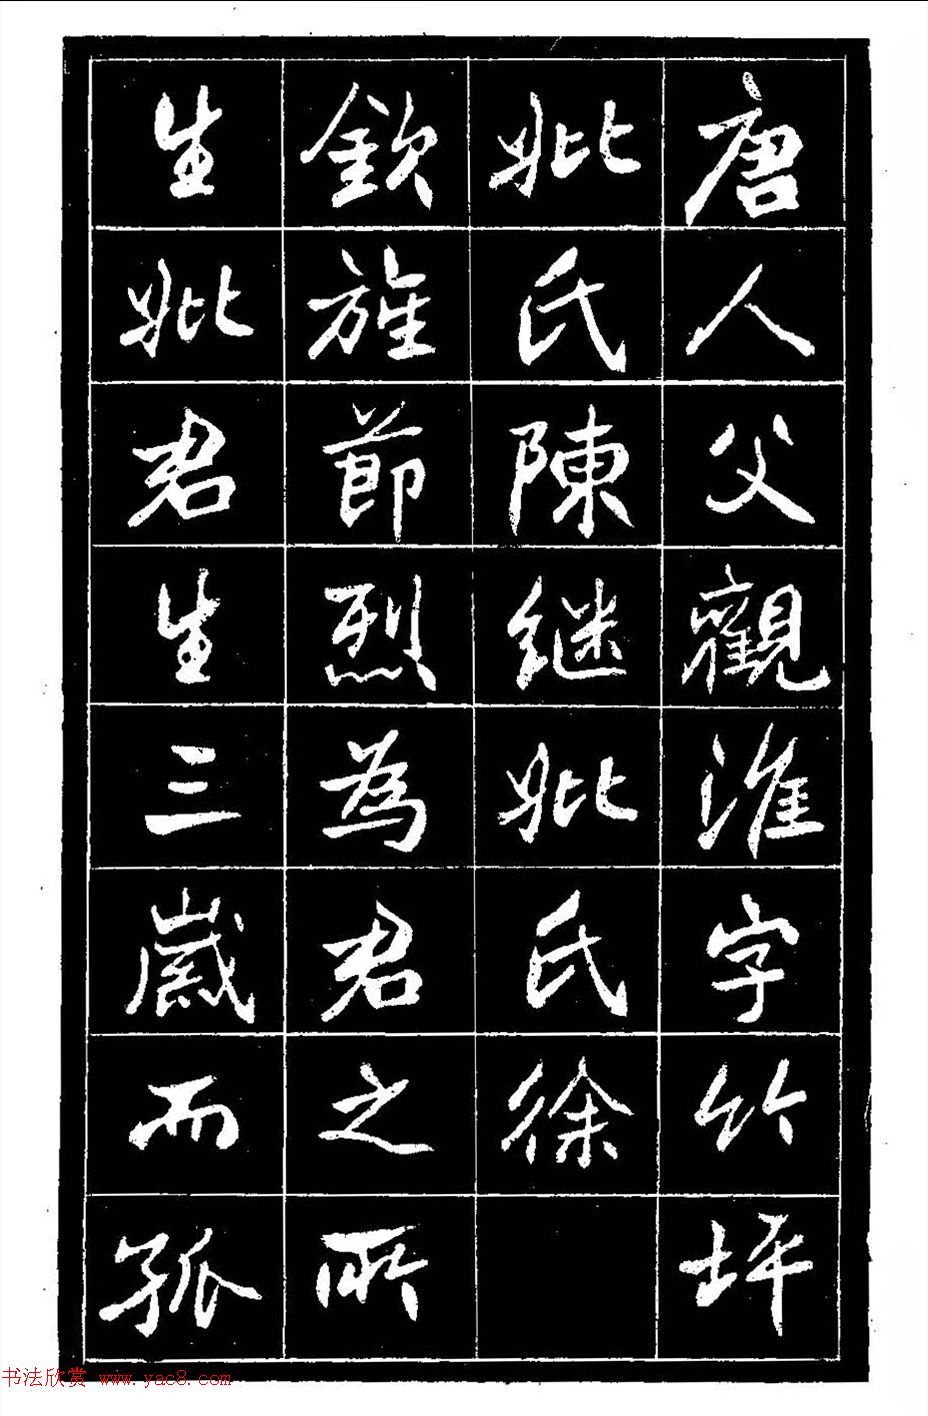 唐人父觀淮字竹坪
妣氏陳继妣氏徐
欽旌節烈為君之所
生妣君生三歲而孤
书法欣赏 www.yac8.com